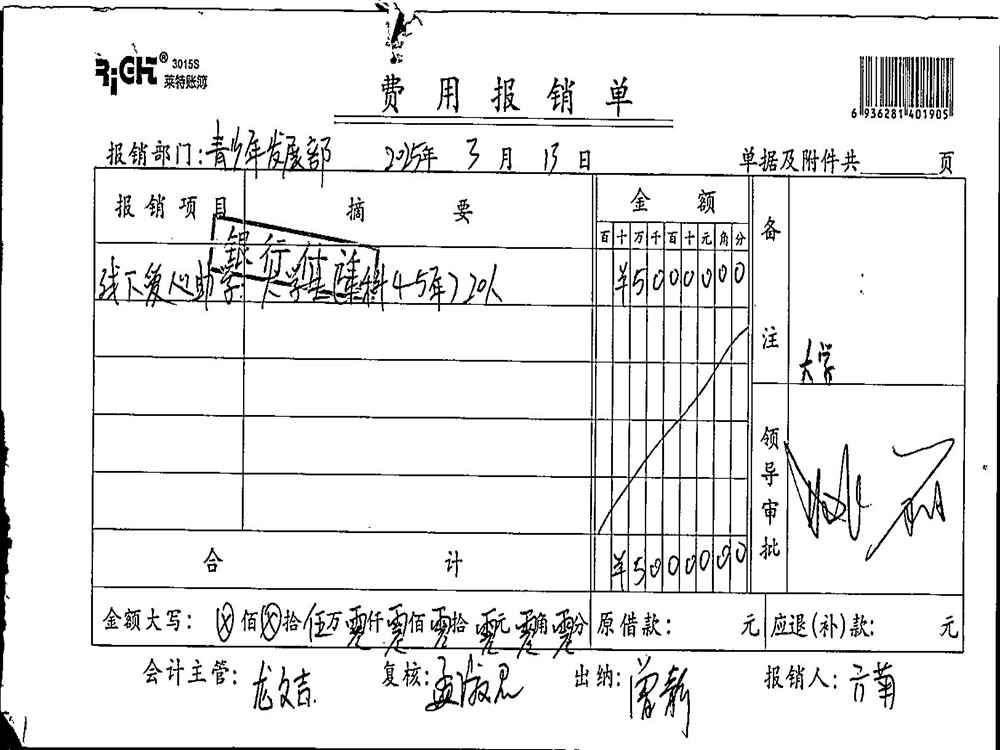 RiGHT® 3015S
莱特账簿
费用报销单
6 936281 401905
报销部门：青少年发展部 2015年 3月 13日 单据及附件共 页
报销项目 摘要 金额 备注
百 十 万 千 百 十 元 角 分
银行付讫
线下爱心助学 大学 20人
¥5000000
大学
领导审批
合计 ¥5000000
金额大写：ⓧ佰ⓧ拾伍万零仟零佰零拾零元零角零分 原借款： 元 应退(补)款： 元
会计主管：龙文吉 复核：孟淑君 出纳：曾静 报销人：